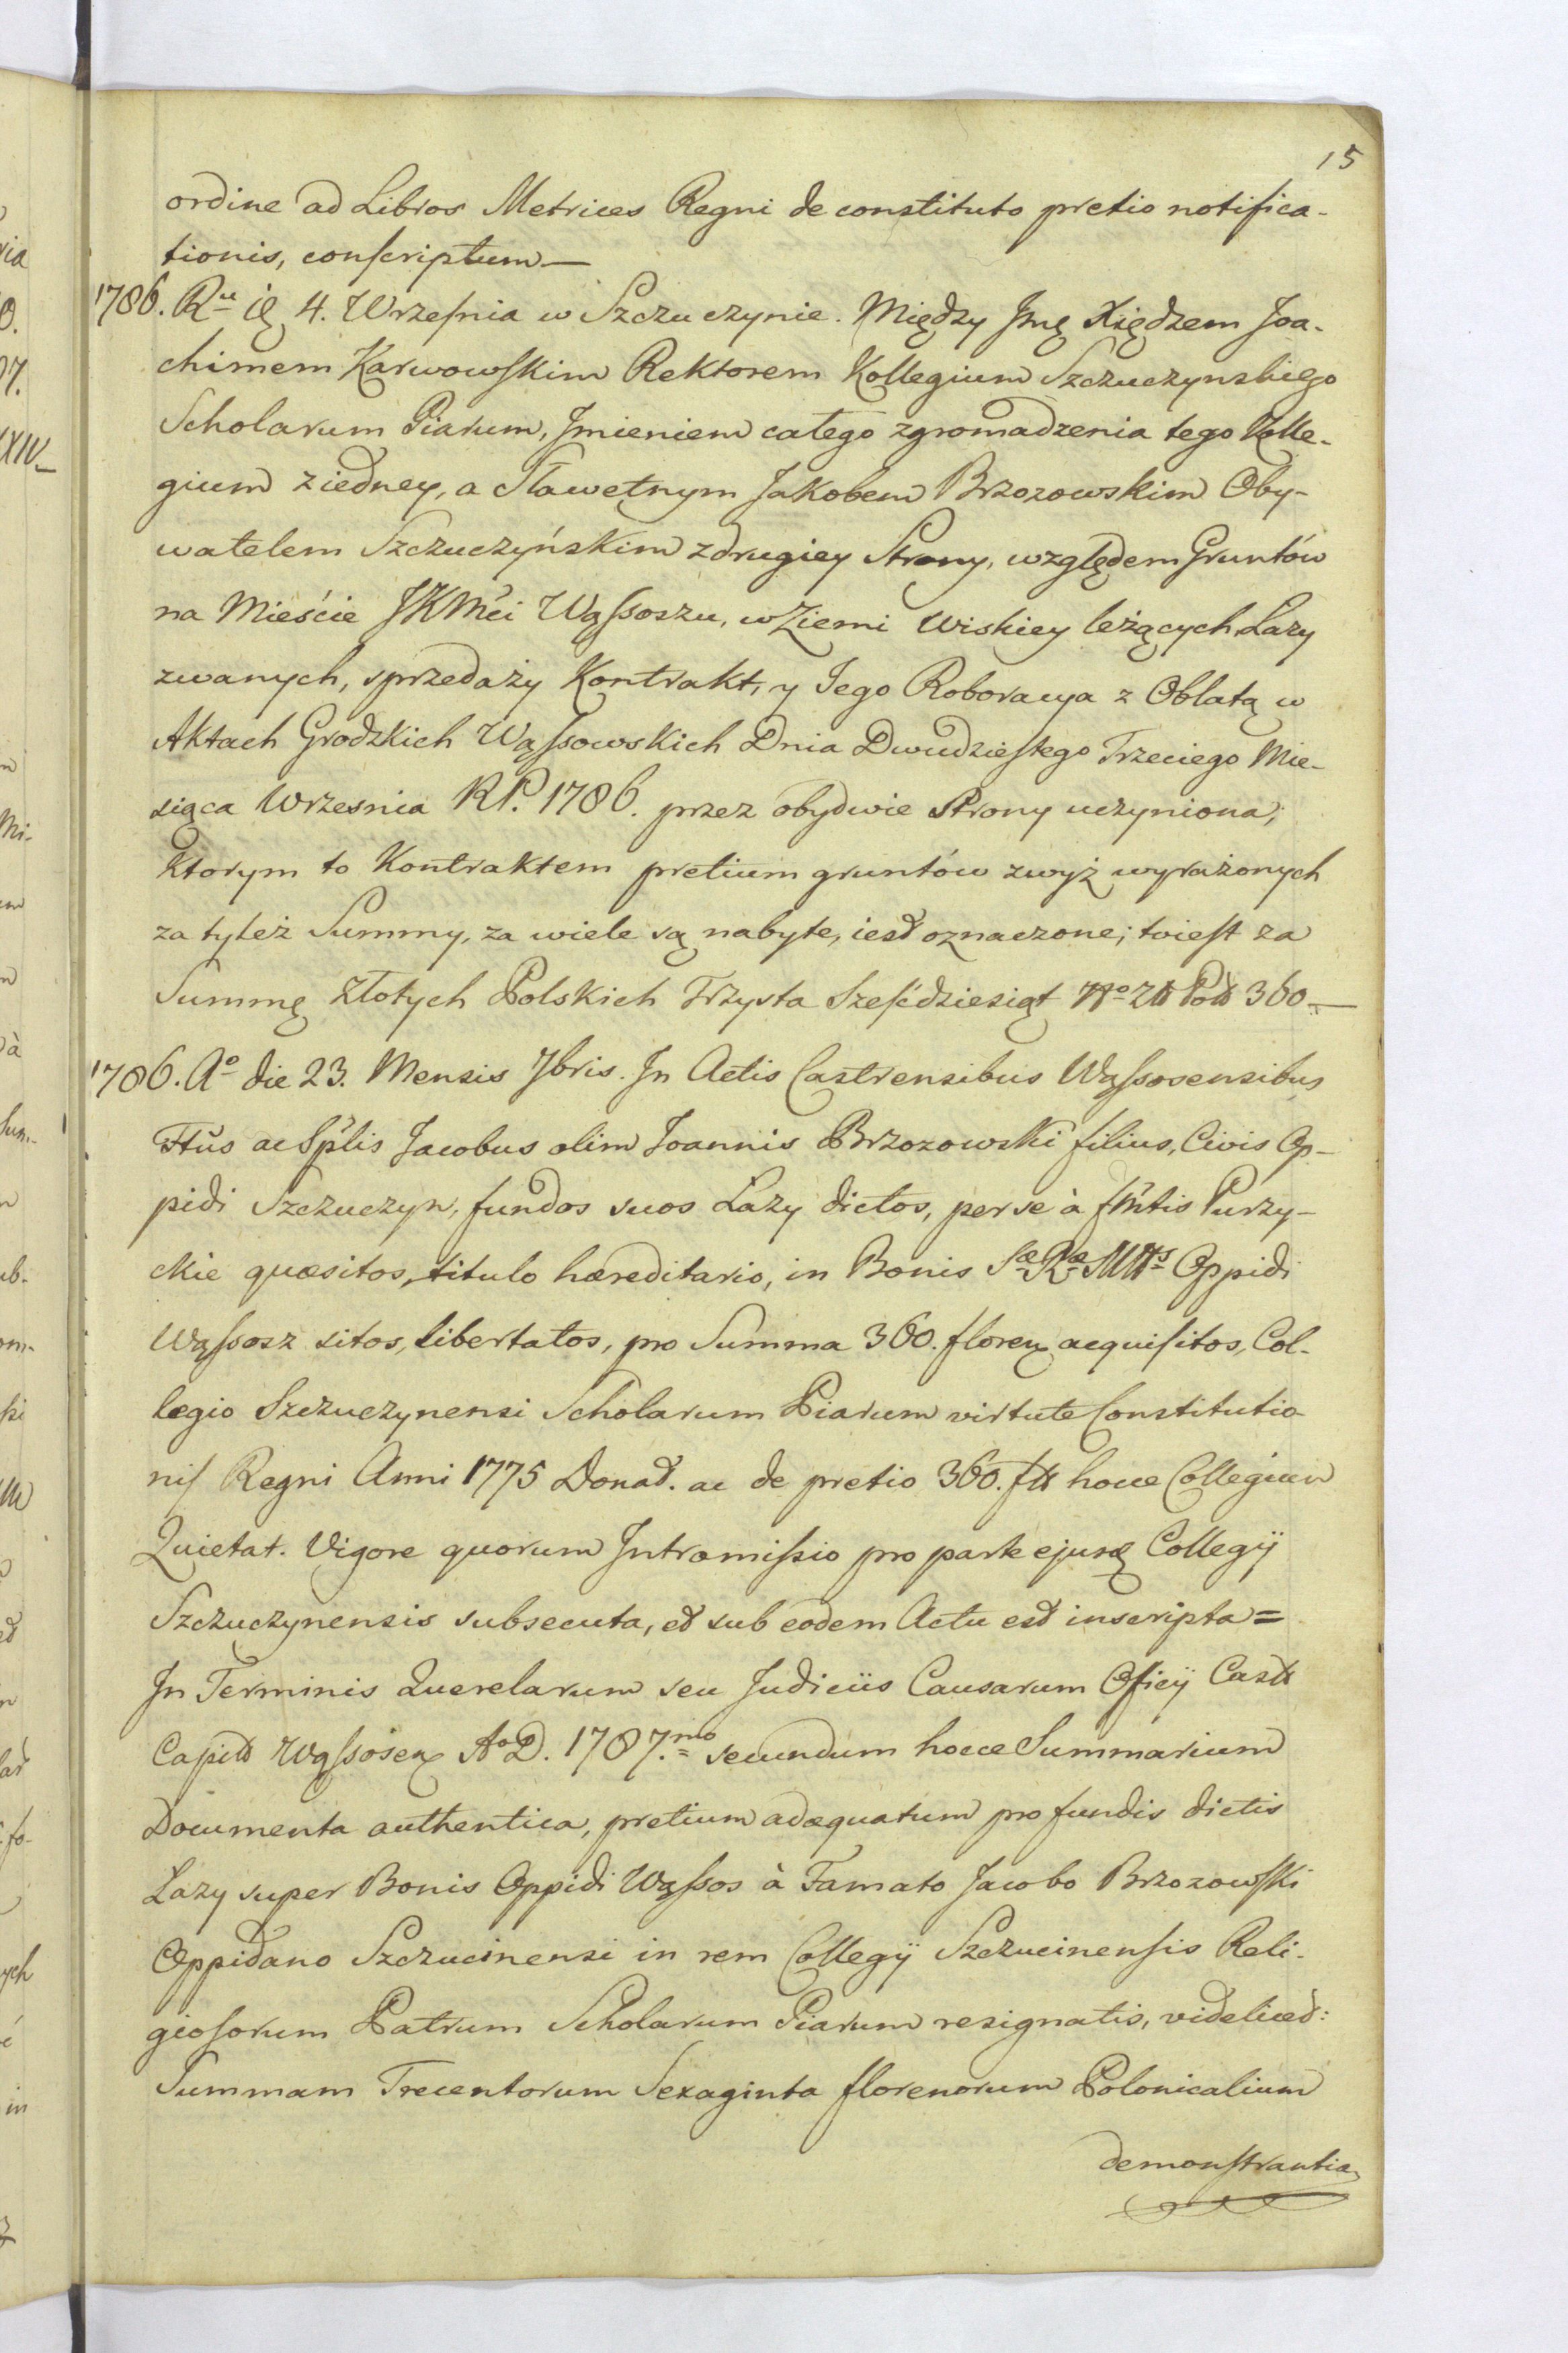 15
ordine ad Libros Metrices Regni de constituto pretio notifica-
tionis, conſcriptum—
1786. Ru ię 4. Wrzeſnia w Szczuczynie. Między Jmę Xiędzem Joa-
chimem Karwowſkim Rektorem Kollegium Szczuczynskiego
Scholarum Piarum, Jmieniem całego zgromadzenia tego Kolle-
gium z iedney, a Sławetnym Jakobem Brzozowskim Oby-
watelem Szczuczyńskim z drugiey Strony, względem Gruntów
na Mieście JKMći Wąſsoszu, w Ziemi Wiskiey leżących Lazy
zwanych, sprzedaży Kontrakt, y Jego Roboracya z Oblatą w
Aktach Grodzkich Wąſsowskich Dnia Dwudzieſtego Trzeciego Mie-
siąca Wrzesnia RP. 1786. przez obydwie Strony uczyniona;
ktorym to Kontraktem pretium gruntów zwyż wyrażonych
za tyleż Summy, za wiele są nabyte, iest oznaczone; to ieſt za
Summę Złotych Polskich Trzysta Szeſćdziesiąt 360—
1786. Ao die 23. Mensis 7bris. Jn Actis Castrensibus Wąſsosensibus
Ftŭs ac Splis Jacobus olim Joannis Brzozowski filius, Civis Op-
pidi Szczuczyn, fundos suos Lazy dictos, per se à Purzy-
ckie quæsitos, titulo hæreditario, in Bonis Sæ Ræ Mttis Oppidi
Wąſsosz sitos, libertatos, pro Summa 360. floren acquiſitos, Col-
legio Szczuczynensi Scholarum Piarum virtute Constitutio-
niſ Regni Anni 1775 Donat. ac de pretio 360. fll hocce Collegium
Quietat. Vigore quorum Jntromiſsio pro parte ejusd Collegÿ
Szczuczynensis subsecuta, et sub eodem Actu est inscripta=
Jn Terminis Querelarum seu Judiciis Causarum Oficÿ Castr
Capit Wąſsosen Ao D. 1787.mo secundum hocce Summarium
Documenta authentica, pretium adæquatum pro fundis dictis
Lazy super Bonis Oppidi Wąſsos à Famato Jacobo Brzozowſki
Oppidano Szczucinensi in rem Collegÿ Szczucinenſis Reli-
gioſorum Patrum Scholarum Piarum resignatis, videlicet:
Summam Trecentorum Sexaginta florenorum Polonicalium
demonſtrantia